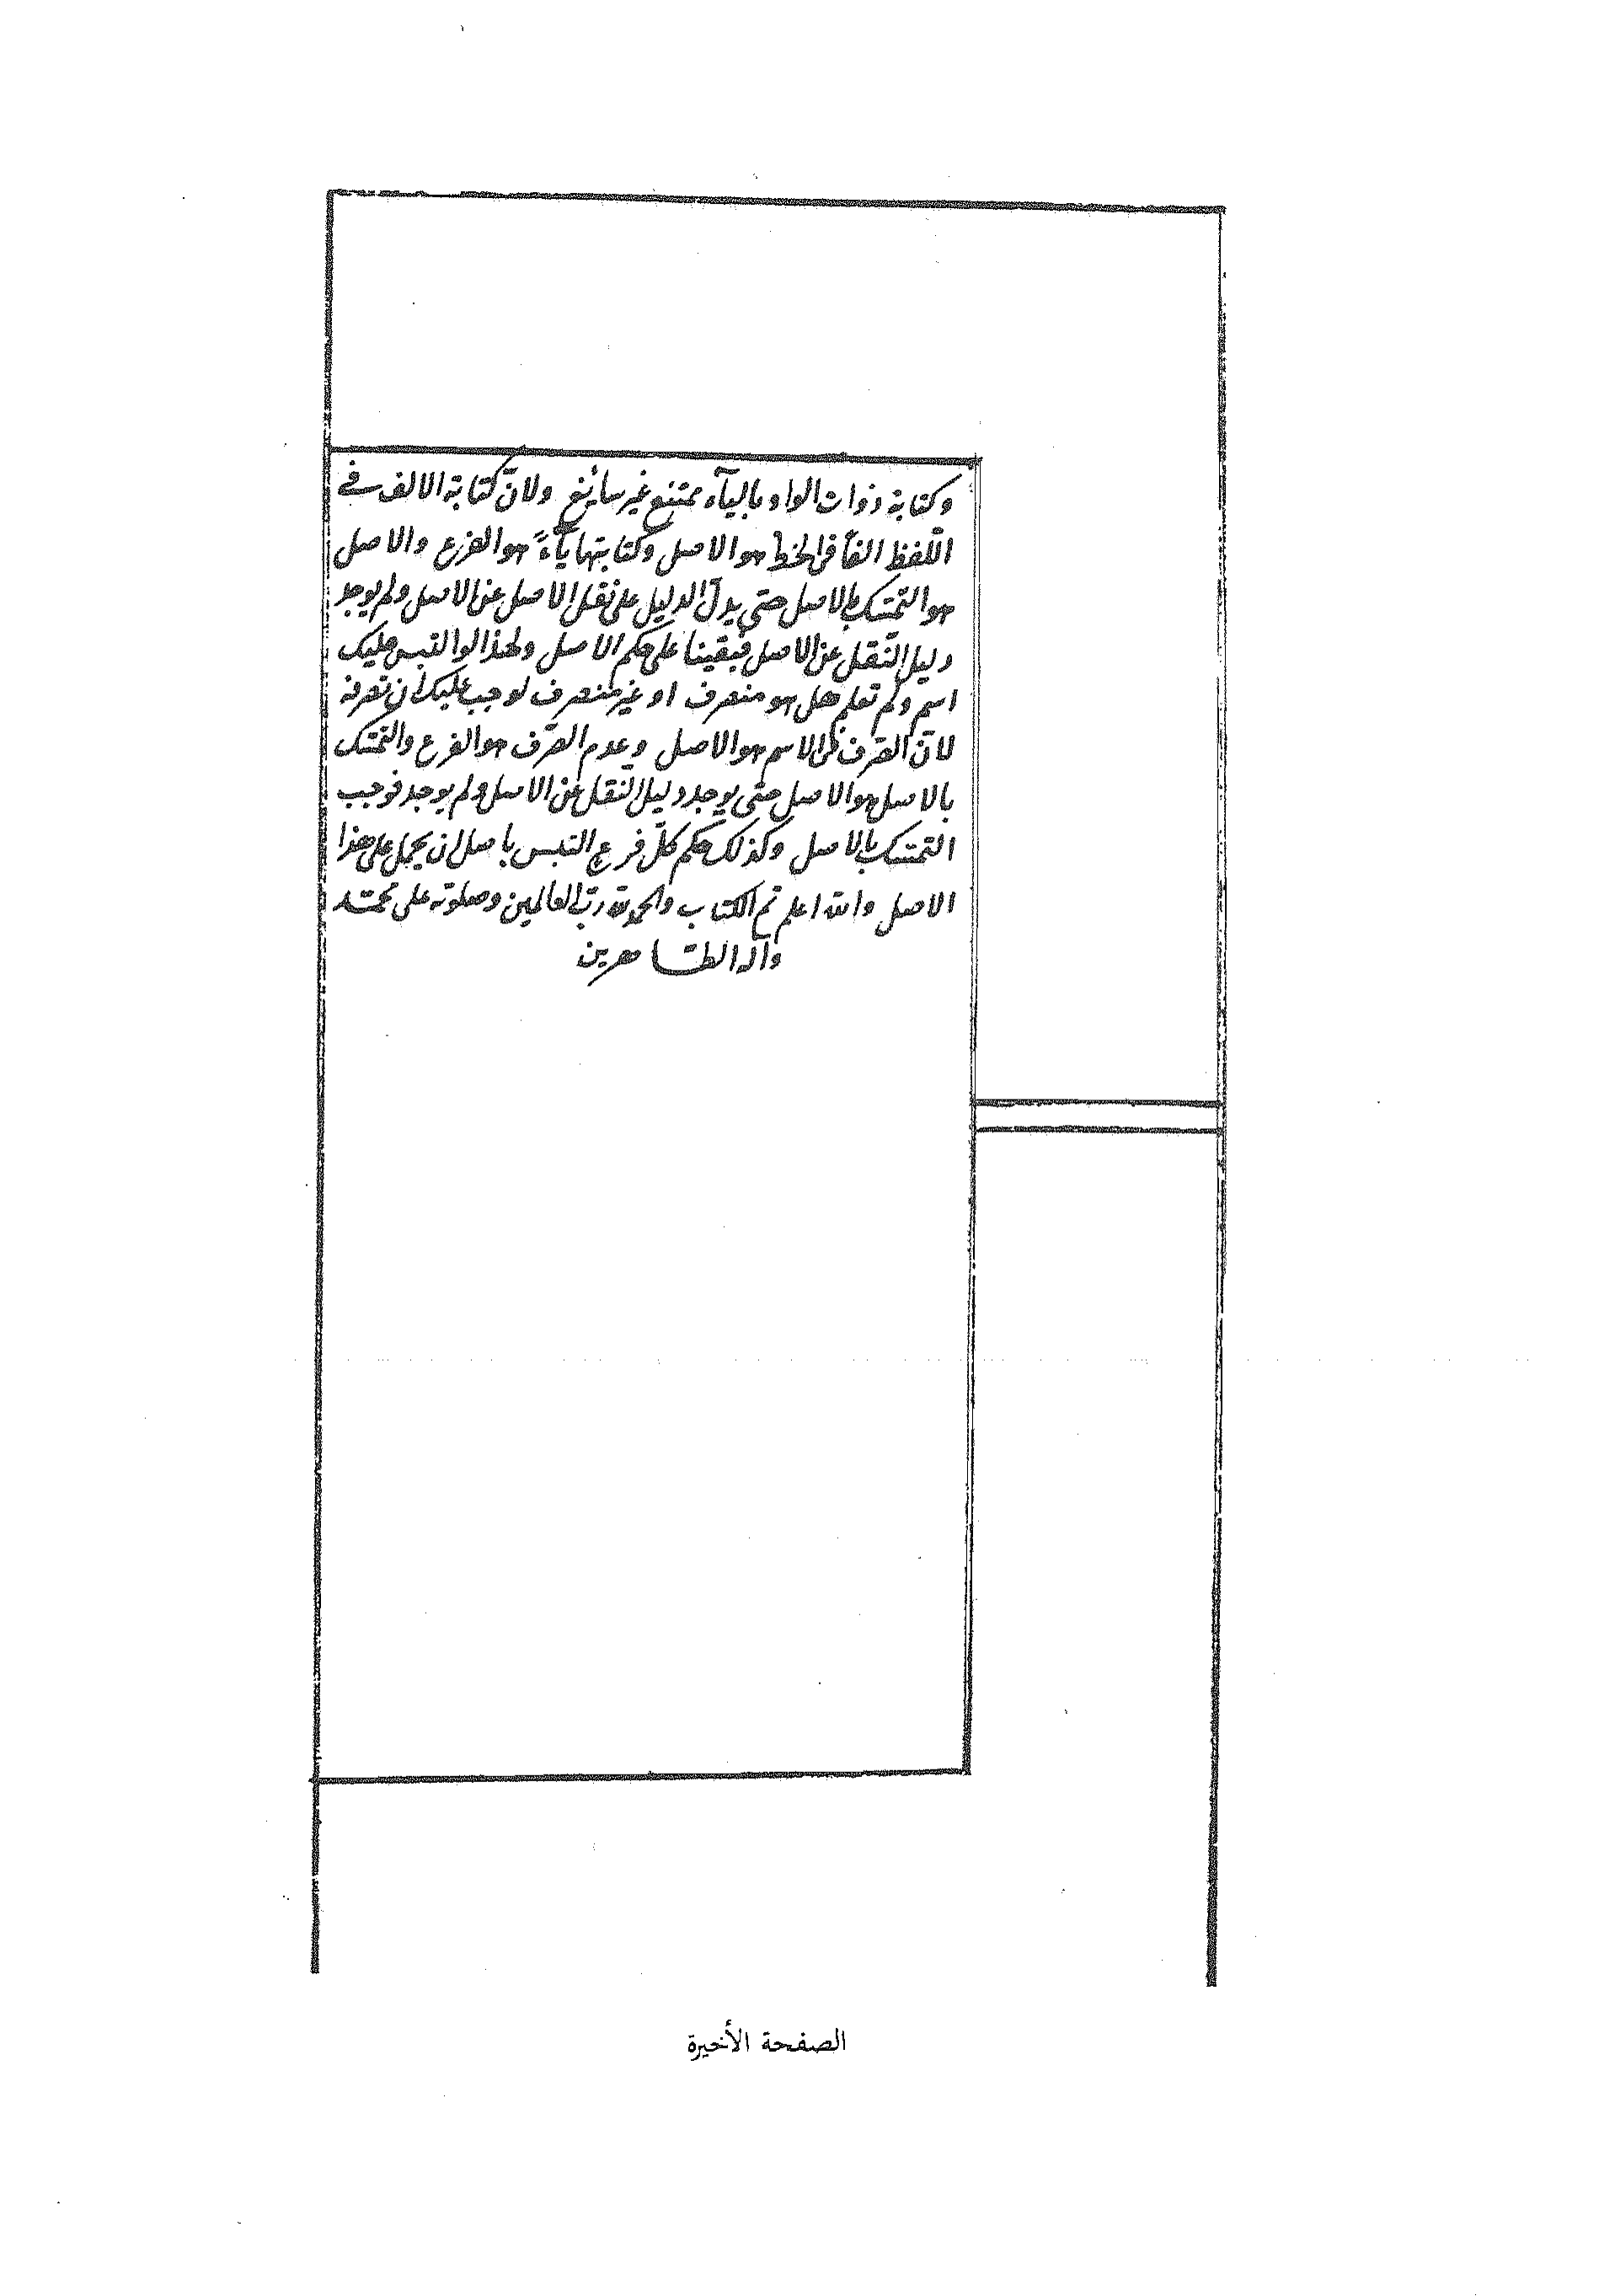 وكتابة ذوات الواو بالياء ممتنع غير سائغ ولانّ كتابة الالف في
اللّفظ الفاً في الخط هو الاصل وكتابتها ياءً هو الفرع والاصل
هو التمّسك بالاصل حتى يدلّ الدليل على نقل الاصل عن الاصل ولم يوجد
دليل النّقل عن الاصل فبقينا على حكم الاصل ولهذا لو التبس عليك
اسم ولم تعلم هل هو منصرف او غير منصرف لوجب عليك ان تصرفه
لانّ الصّرف في الاسم هو الاصل وعدم الصّرف هو الفرع والتمّسك
بالاصل هو الاصل حتى يوجد دليل النّقل عن الاصل ولم يوجد فوجب
التمّسك بالاصل وكذلك حكم كلّ فرع التبس باصل ان يحمل على هذا
الاصل والله اعلم تم الكتاب والحمد لله ربّ العالمين وصلوته على محمّد
وآله الطّاهرين
الصفحة الأخيرة